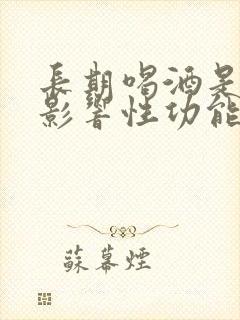 長期喝酒是
影響性功能
蘇幕煙